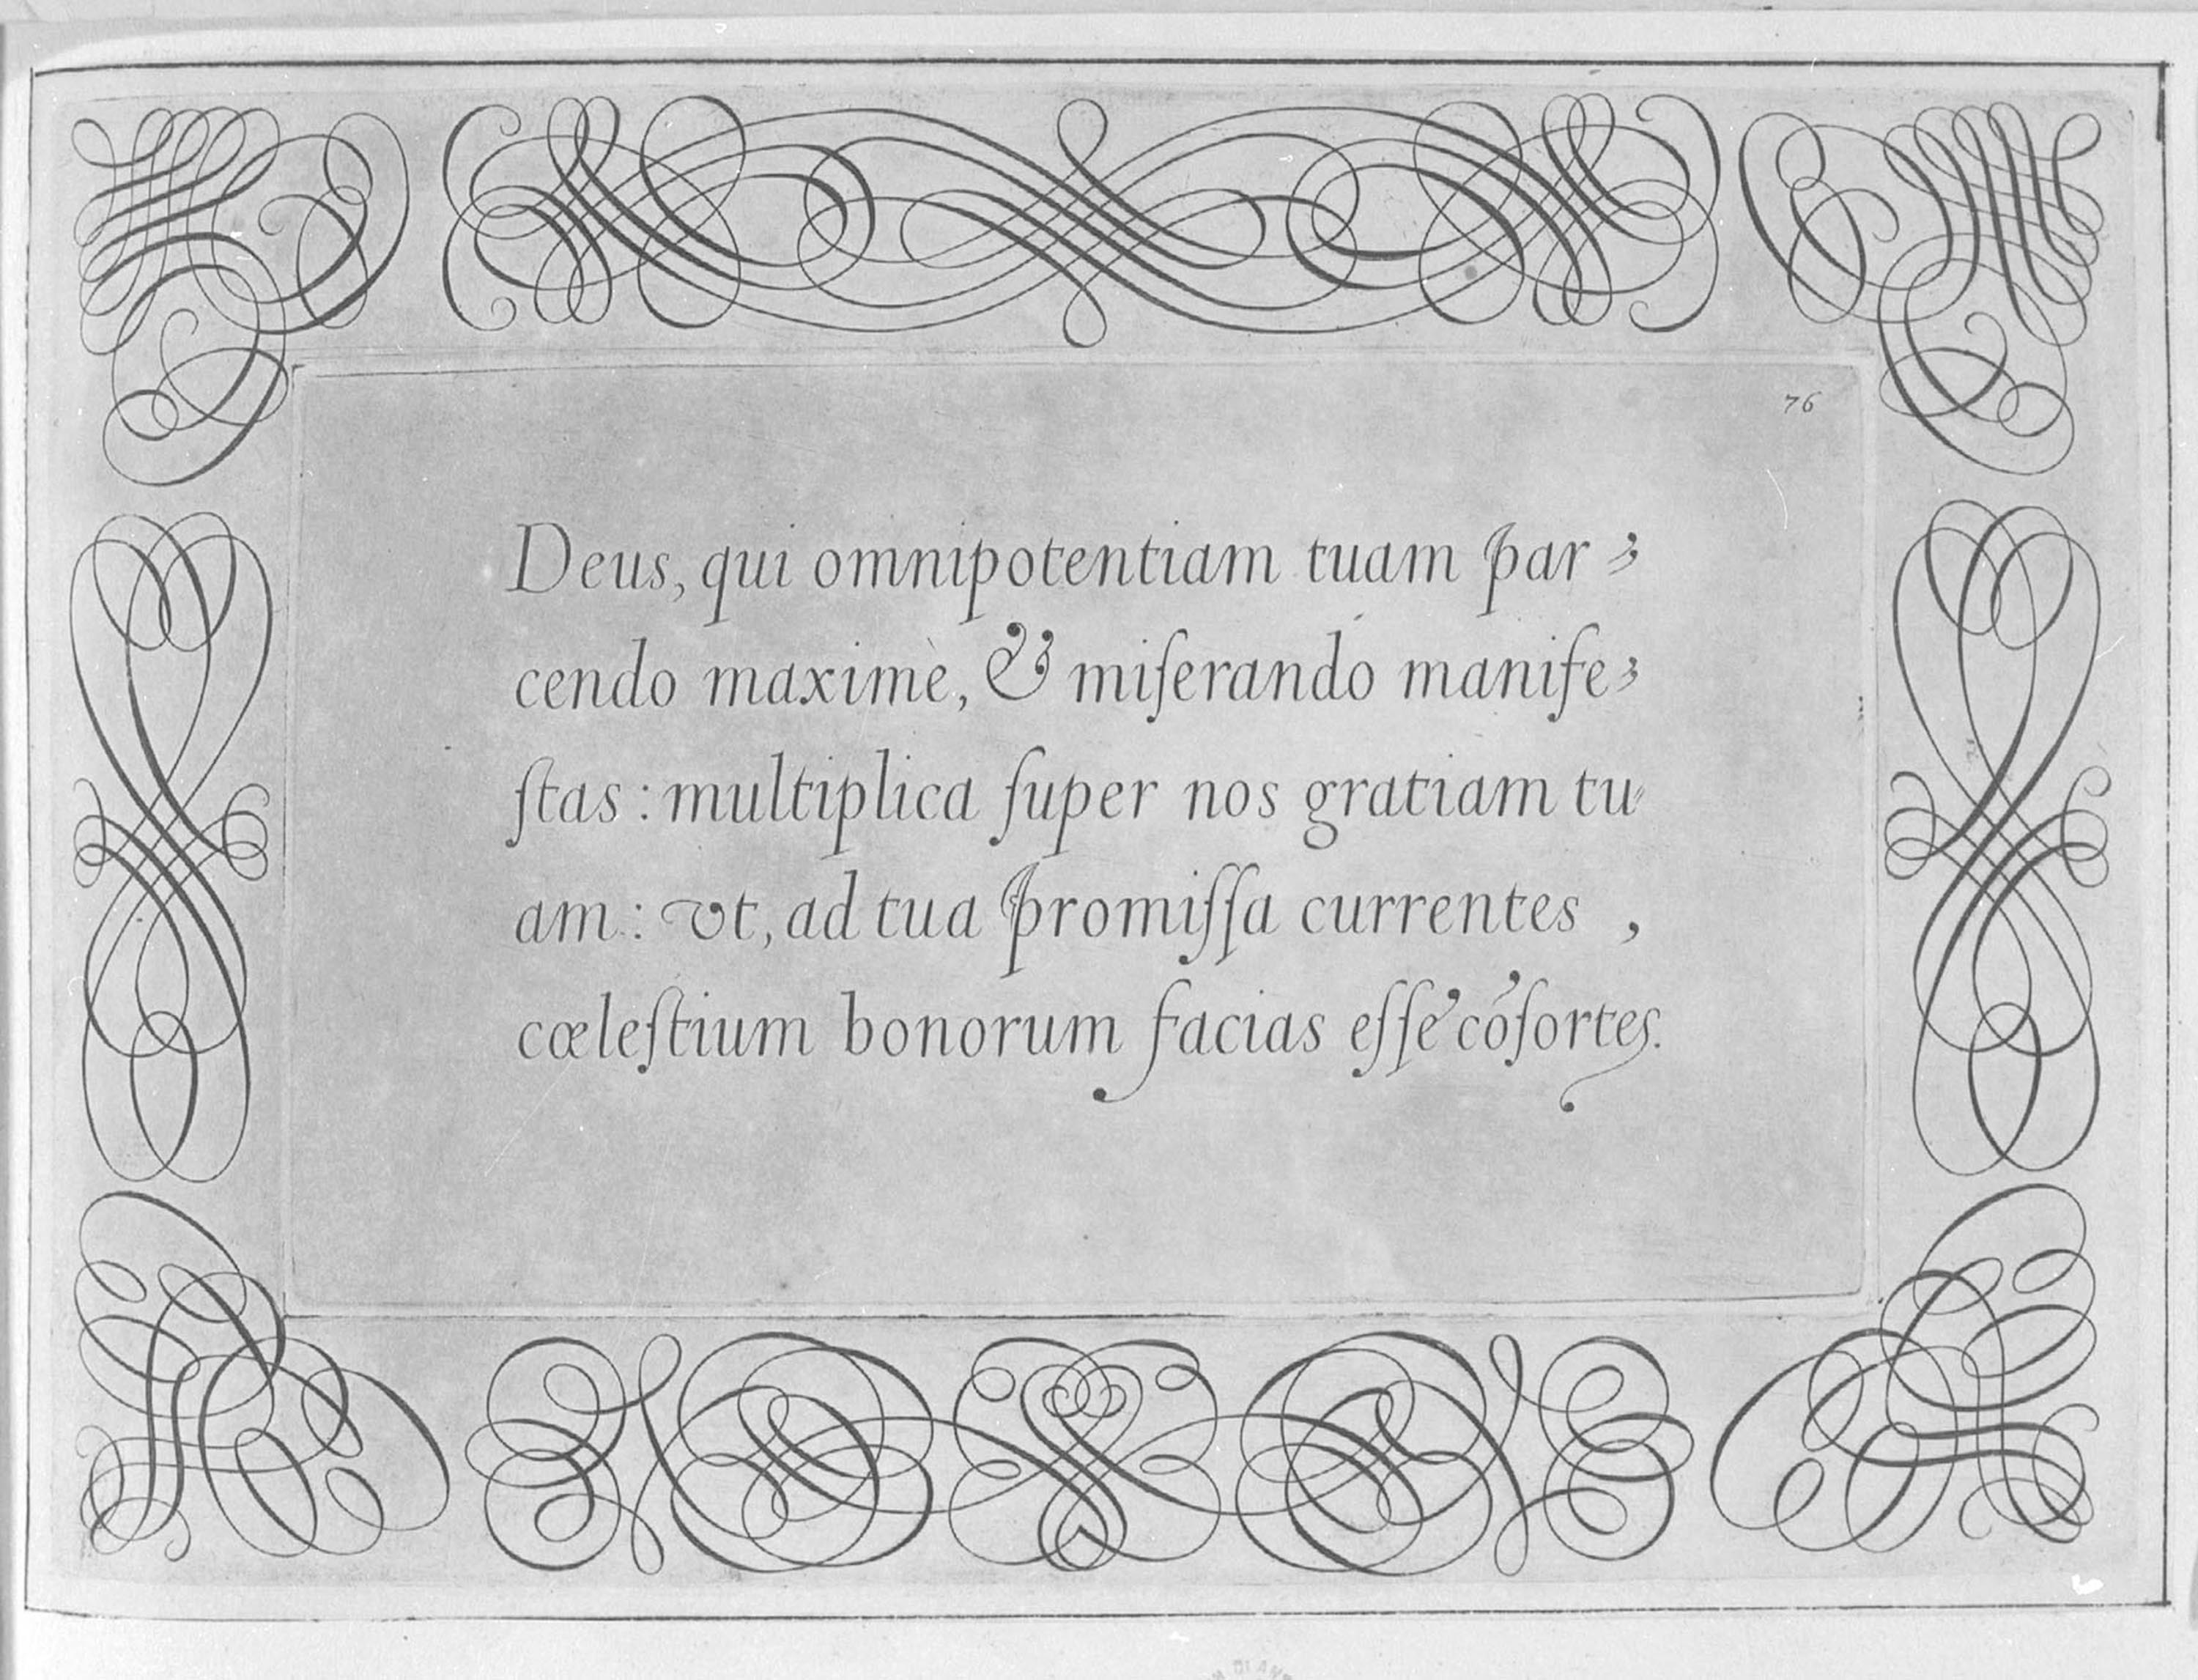 76
Deus, qui omnipotentiam tuam par-
cendo maximè, & miſerando manife-
ſtas: multiplica ſuper nos gratiam tu-
am: vt, ad tua promiſſa currentes,
cœleſtium bonorum facias eſſe cõſortes.